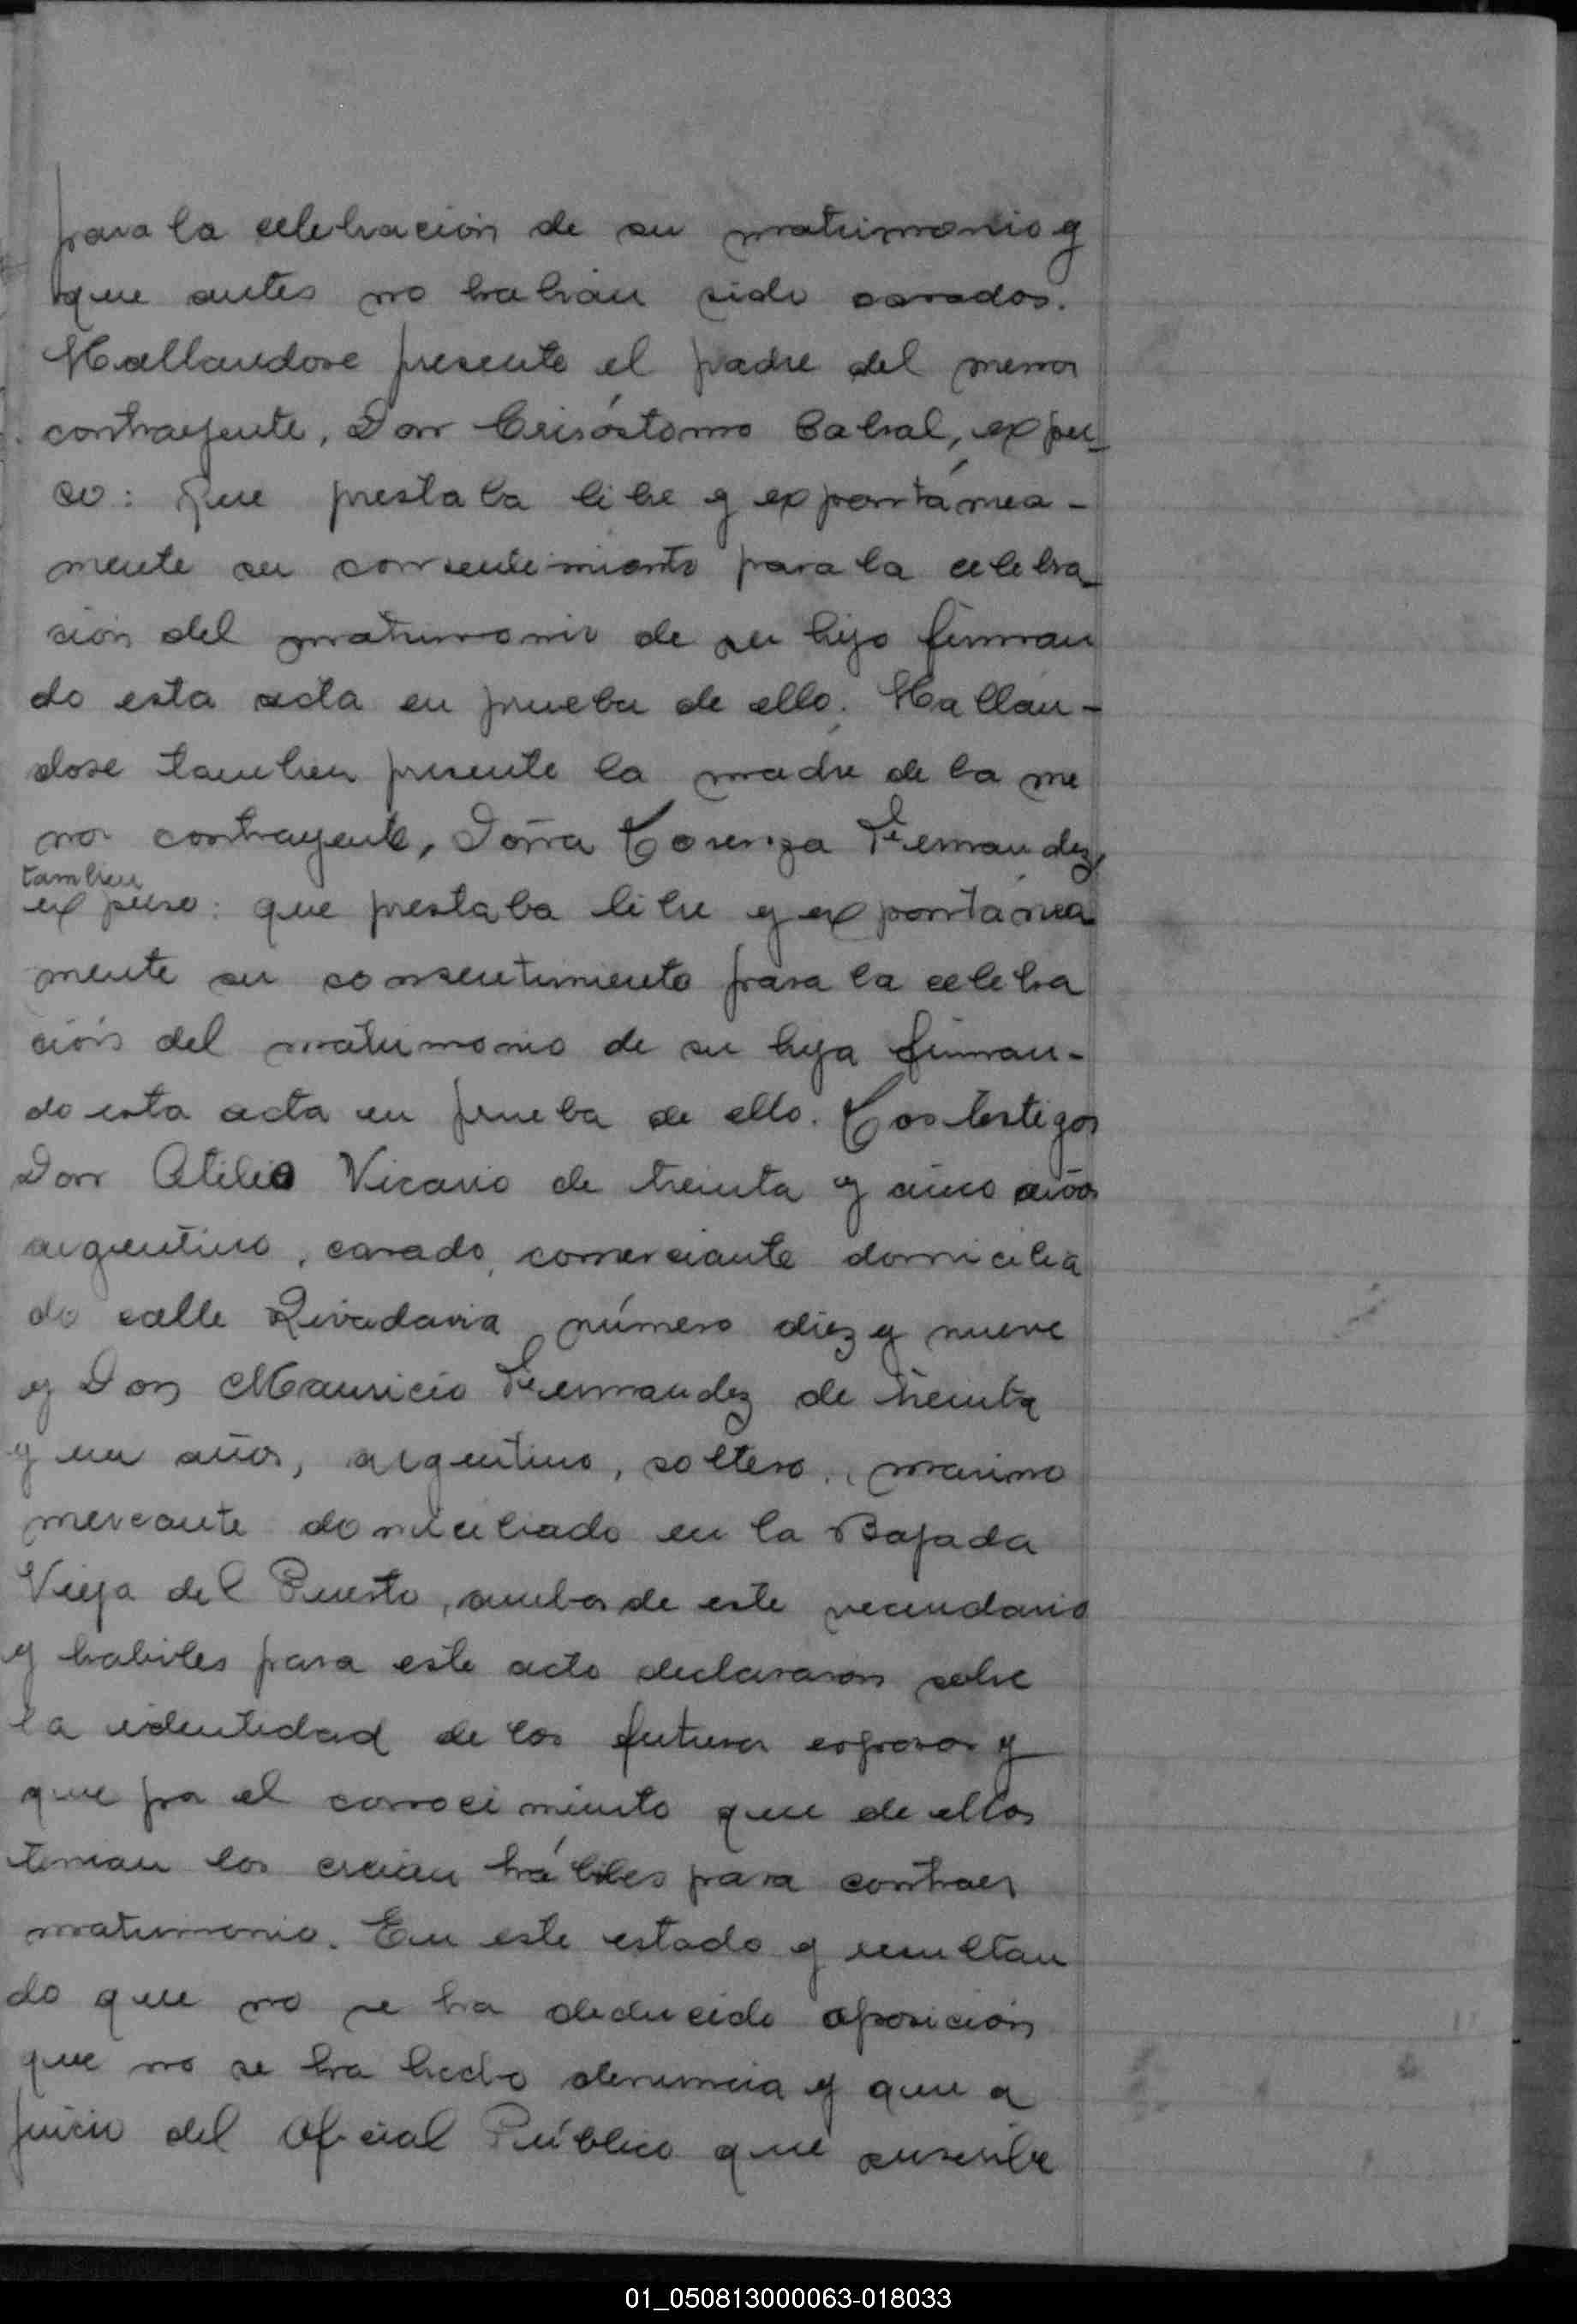 para la celebración de su matrimonio y
que antes no habian sido casados.
Hallandose presente el padre del menor
contrayente, Don Crisóstomo Cabral, expu-
so: Que prestaba libre y expontánea-
mente su consentimiento para la celebra-
ción del matrimonio de su hijo firman
do esta acta en prueba de ello. Hallán-
dose tambien presente la madre de la me
nor contrayente, Doña Lorenza Fernandez,
tambien
expuso: que prestaba libre y expontánea
mente su consentimiento para la celebra
ción del matrimonio de su hija firman-
do esta acta en prueba de ello. Los testigos
Don Atilio Vicario de treinta y cinco años
argentino, casado, comerciante domicilia
do calle Rivadavia número diez y nueve
y Don Mauricio Fernandez de treinta
y un años, argentino, soltero, marino
mercante domiciliado en la Bajada
Vieja del Puerto, ambos de este vecindario
y habiles para este acto declararon sobre
la identidad de los futuros esposos y
que por el conocimiento que de ellos
tenian los creian hábiles para contraer
matrimonio. En este estado y resultan
do que no se ha deducido oposición
que no se ha hecho denuncia y que a
juicio del Oficial Público que suscribe
01_050813000063-018033